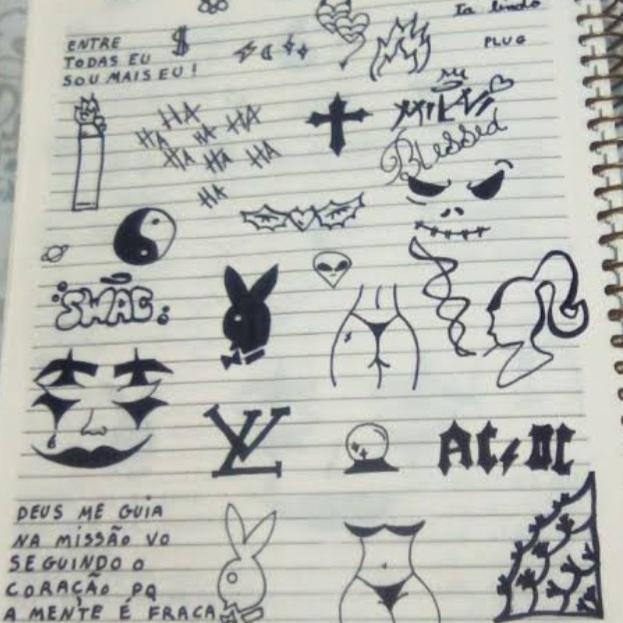 Ta lindo
ENTRE
TODAS EU
SOU MAIS EU!
$
PLUG
HA HA HA HA HA HA HA HA
Blessed
SWAG
LV
AC/DC
DEUS ME GUIA
NA MISSÃO VO
SEGUINDO O
CORAÇÃO PQ
A MENTE É FRACA